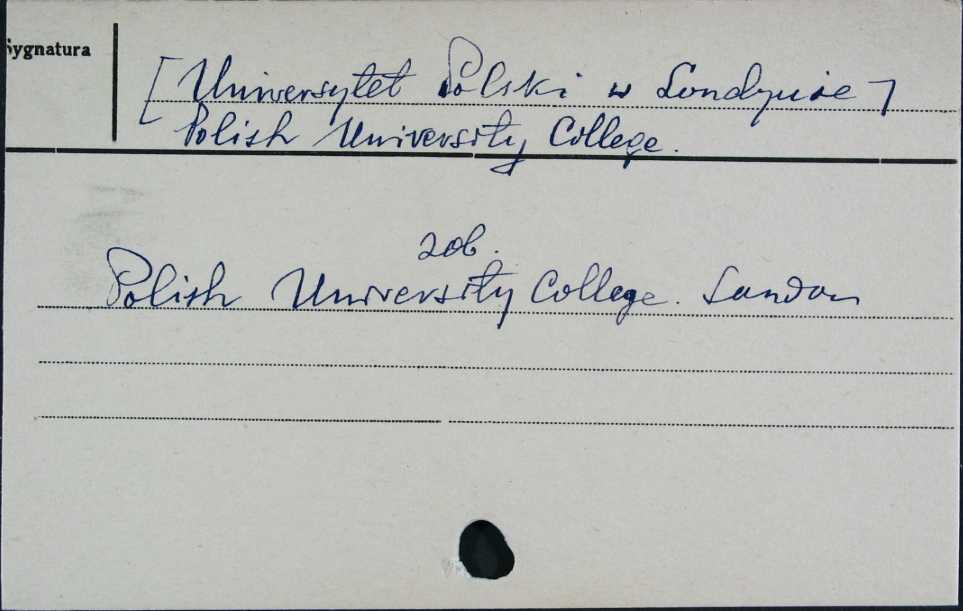 Sygnatura
[Uniwersytet Polski w Londynie]
Polish University College.
zob.
Polish University College. London